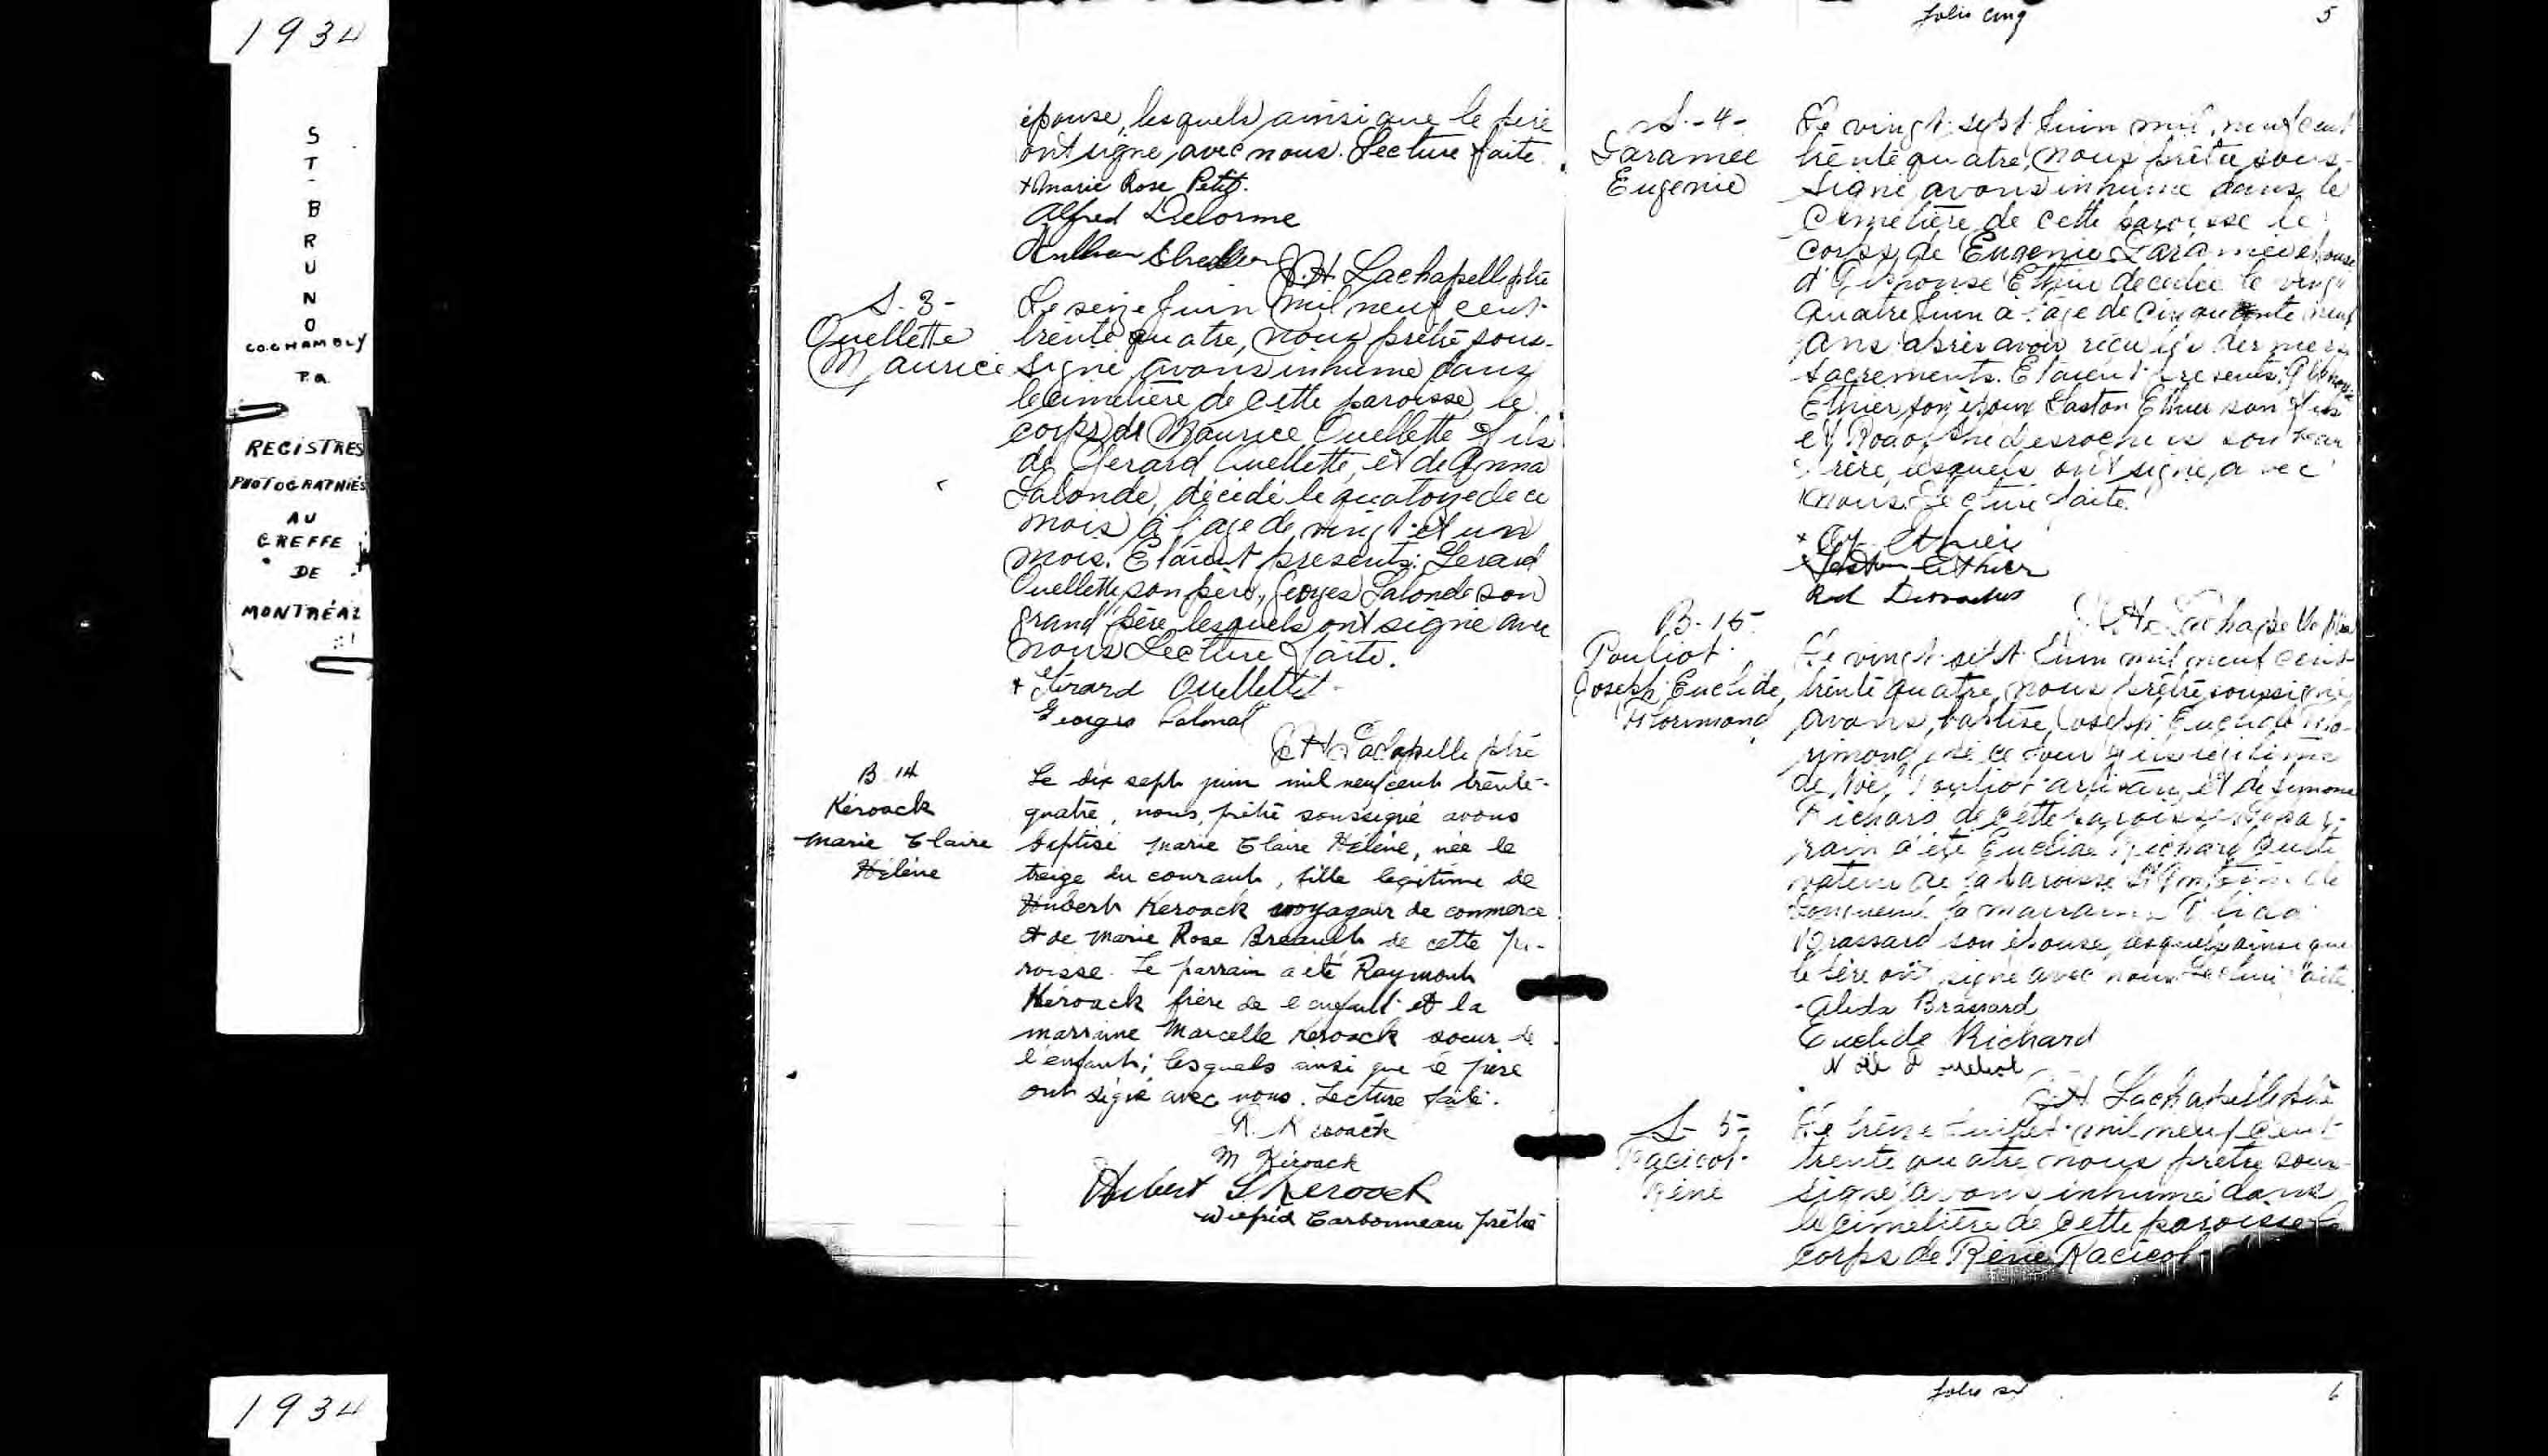 1934
ST-BRUNO
CO.CHAMBLY
P.Q.
REGISTRES
PHOTOGRAPHIÉS
AU
GREFFE
DE
MONTRÉAL
épouse, lesquels ainsi que le père
ont signé avec nous. Lecture faite.
+ Marie Rose Petit.
Alfred Delorme
J.H. Lachapelle ptre
S-3-
Ouellette
Maurice
Le seize Juin mil neuf cent
trente quatre, nous prêtre sous-
signé avons inhumé dans
le cimetière de cette paroisse le
corps de Maurice Ouellette fils
de Gerard Ouellette, et de Anna
Lalonde, décédé le quatorze de ce
mois à l'age de vingt et un
mois. Etaient presents: Gerard
Ouellette son père, Georges Lalonde son
grand'père lesquels ont signé avec
nous Lecture faite.
+ Gérard Ouellette
Georges Lalonde
J H Lachapelle ptre
B 14
Keroack
Marie Claire
Hélène
Le dix sept juin mil neuf cent trente-
quatre, nous, prêtre soussigné avons
baptisé Marie Claire Hélène, née le
treize du courant, fille légitime de
Hubert Keroack voyageur de commerce
et de Marie Rose Breault de cette pa-
roisse. Le parrain a été Raymond
Kéroack frère de l'enfant et la
marraine Marcelle Keroack soeur de
l'enfant; lesquels ainsi que le père
ont signé avec nous. Lecture faite.
R. Keroack
M Kéroack
Hubert Keroack
Wilfrid Carbonneau prêtre
folio cinq
5
S-4-
Laramée
Eugenie
Le vingt sept Juin mil neuf cent
trente quatre, nous prêtre sous-
signé avons inhumé dans le
Cimetière de cette paroisse le
corps de Eugenie Laramée épouse
d'Alphonse Ethier decedée le vingt
quatre Juin à l'age de cinquante neuf
ans après avoir reçu les derniers
Sacrements. Etaient presents: Alphonse
Ethier son époux Gaston Ethier son fils
et Rodolphe Desrochers son beau
frère, lesquels ont signé avec
nous. Lecture faite.
Ethier
Gaston Ethier
Rod Desroches
J.H. Lachapelle ptre
B-15
Pouliot
Joseph Euclide
Florimond
Le vingt sept Juin mil neuf cent
trente quatre, nous prêtre soussigné,
avons baptisé Joseph Euclide Flo-
rimond, né ce jour fils légitime
de Noël Pouliot artisan et de Simone
Richard de cette paroisse. Le par-
rain a été Euclide Richard culti-
vateur de la paroisse St Antoine de
la marraine Alida
Brassard son épouse, lesquels ainsi que
le père ont signé avec nous Lecture faite.
Alida Brassard
Euclide Richard
Noël Pouliot
J H Lachapelle ptre
S-5-
Racicot
Réné
Le treize Juillet mil neuf cent
trente quatre nous prêtre sous-
signé avons inhumé dans
le cimetière de cette paroisse le
corps de Réné Racicot
1934
folio six
6